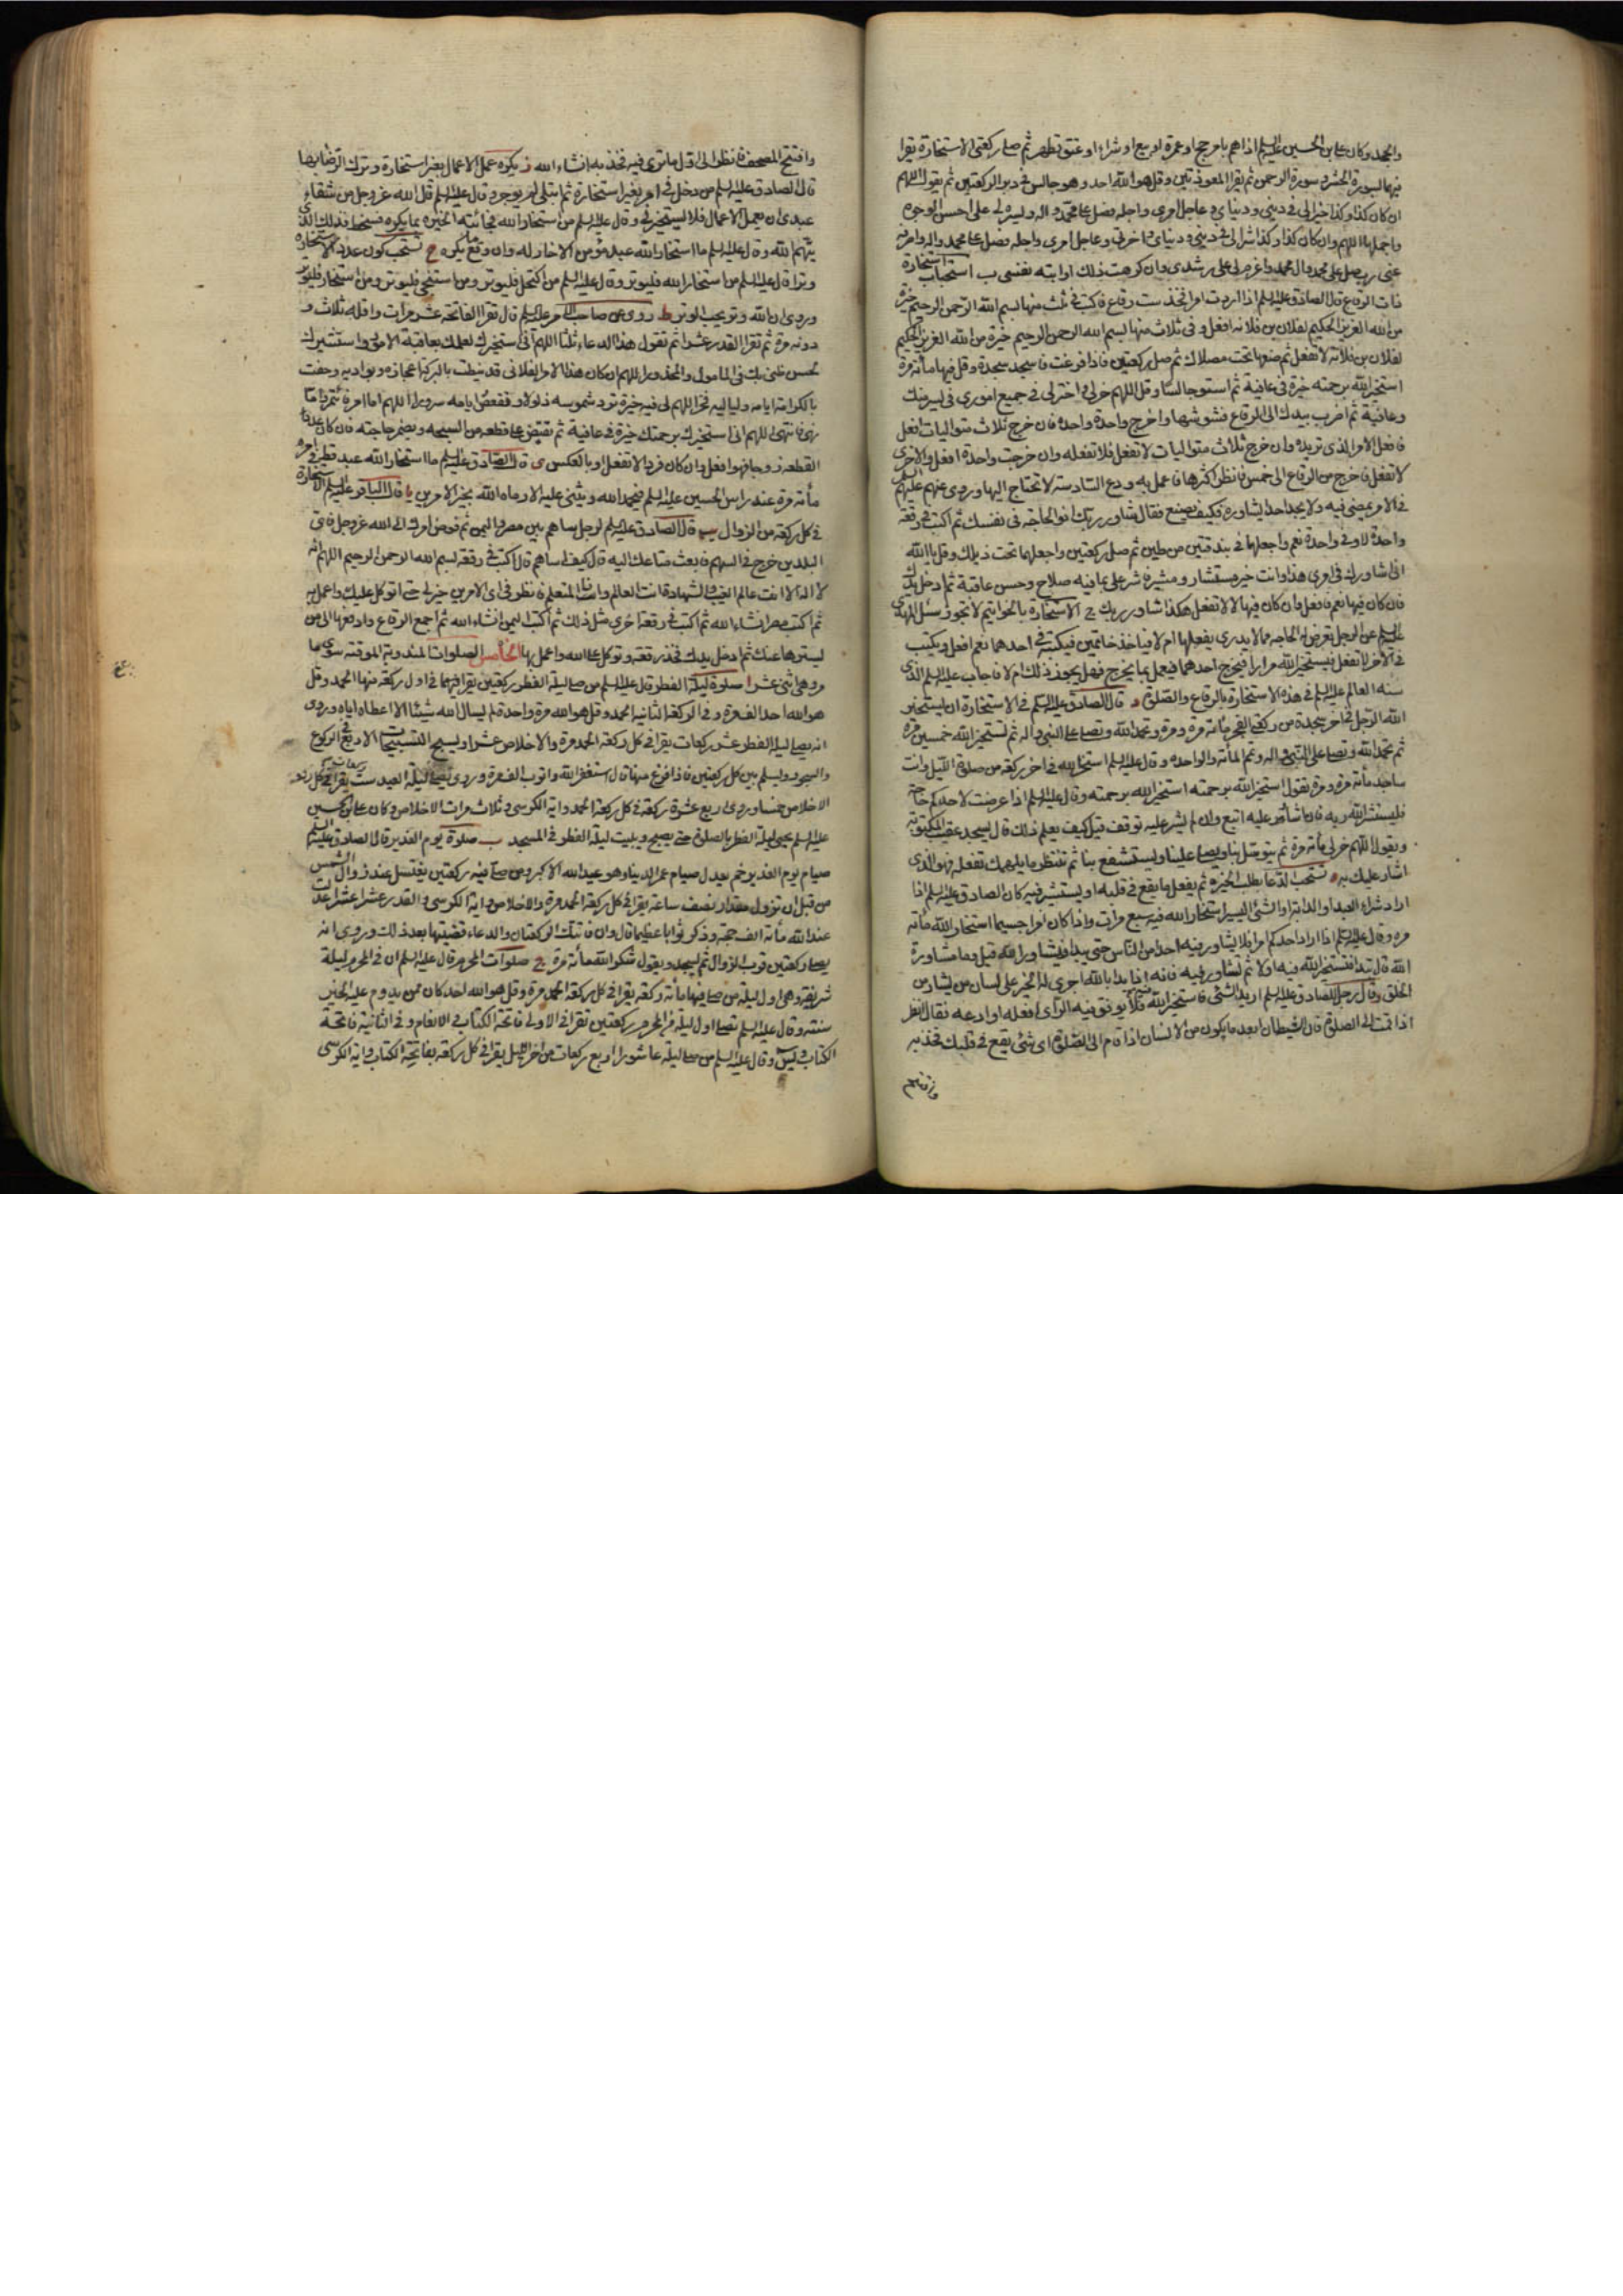 والحمد وكان علي بن الحسين عليه السلم اذا هم بامر حج او عمرة او بيع او شراء او عتق تطهر ثم صلى ركعتي الاستخارة يقرا
فيهما سورة الحشر وسورة الرحمن ثم يقرا المعوذتين وقل هو الله احد وهو جالس في دبر الركعتين ثم يقول اللهم
ان كان كذا وكذا خيرا لي في ديني ودنياي وعاجل امري واجله فصل على محمد واله ويسره لي على احسن الوجوه
واجملها اللهم وان كان كذا وكذا شرا لي في ديني ودنياي واخرتي وعاجل امري واجله فصل على محمد واله واصرفه
عني رب صل على محمد وال محمد واعزم لي على رشدي وان كرهت ذلك او ابته نفسي ب استحباب استخارة
ذات الرقاع قال الصادق عليه السلم اذا اردت امرا فخذ ست رقاع فاكتب في ثلث منها بسم الله الرحمن الرحيم خيرة
من الله العزيز الحكيم لفلان بن فلانه افعل وفي ثلاث منها بسم الله الرحمن الرحيم خيرة من الله العزيز الحكيم
لفلان بن فلانه لا تفعل ثم ضعها تحت مصلاك ثم صل ركعتين فاذا فرغت فاسجد سجدة وقل فيها مأته مرة
استخير الله برحمته خيرة في عافية ثم استو جالسا وقل اللهم خر لي واختر لي في جميع اموري في يسر منك
وعافية ثم اضرب بيدك الى الرقاع فشوشها واخرج واحدة واحدة فان خرج ثلاث متواليات افعل
فافعل الامر الذي تريده وان خرج ثلاث متواليات لا تفعل فلا تفعله وان خرجت واحدة افعل والاخرى
لا تفعل فاخرج من الرقاع الى خمس فانظر اكثرها فاعمل به ودع السادسة لا تحتاج اليها وروي عنهم عليهم السلم
في الامر يمضي فيه ولا يجد احدا يشاوره فكيف يصنع فقال شاور ربك انو الحاجة في نفسك ثم اكتب في رقعة
واحدة لا وفي واحدة نعم واجعلهما في بندقتين من طين ثم صل ركعتين واجعلهما تحت ذيلك وقل يا الله
اني اشاورك في امري هذا وانت خير مستشار ومشير فاشر علي بما فيه صلاح وحسن عاقبة ثم ادخل يدك
فان كان فيها نعم فافعل وان كان فيها لا لا تفعل هكذا شاور ربك ج الاستخارة بالخواتيم لا تجوز سئل المهدي
عليه السلم عن الرجل تعرض له الحاجه مما لا يدري يفعلها ام لا فياخذ خاتمين فيكتب في احدهما نعم افعل ويكتب
في الاخر لا تفعل فيستخير الله مرارا فيخرج احدهما فيعمل بما يخرج فهل يجوز ذلك ام لا فاجاب عليه السلم الذي
سنه العالم عليه السلم في هذه الاستخارة بالرقاع والصلوة د قال الصادق عليه السلم في الاستخارة ان يستخير
الله الرجل في اخر سجدة من ركعتي الفجر مائة مرة ومرة وتحمد الله وتصلي على النبي واله ثم تستخير الله خمسين مرة
ثم تحمد الله وتصلي على النبي واله وتتم المأة والواحده وقال عليه السلم استخر الله في اخر ركعة من صلوة الليل وانت
ساجد مأته مرة ومرة تقول استخير الله برحمته استخير الله برحمته وقال عليه السلم اذا عرضت لاحدكم حاجة
فليستشر الله ربه فان اشار عليه اتبع وان لم يشر عليه توقف قيل كيف يعلم ذلك قال يسجد عقيب المكتوبة
ويقول اللهم خر لي مأته مرة ثم يتوسل بنا ويصلي علينا ويستشفع بنا ثم تنتظر ما يلهمك تفعله فهو الذي
اشار عليك به ه تستحب الدعا بطلب الخيرة ثم يفعل ما يقع في قلبه او يستشير فيه كان الصادق عليه السلم اذا
اراد شراء العبد او الدابة او الشئ اليسير استخار الله فيه سبع مرات واذا كان امرا جسيما استخار الله مأته
مره وقال عليه السلم اذا اراد احدكم امرا فلا يشاور فيه احدا من الناس حتى يبدا فيشاور الله قيل وما مشاورة
الله قال تبدا فتستخير الله فيه اولا ثم تشاور فيه فانه اذا بدا بالله اجرى له الخير على لسان من يشاء من
الخلق وقال رجل للصادق عليه السلم اريد الشئ فاستخير الله فيه فلا يوفق فيه الراي افعله او ادعه فقال انظر
اذا قمت الى الصلوة فان الشيطان ابعد ما يكون من الانسان اذا قام الى الصلوة اي شئ يقع في قلبك فخذ به
وافتتح
وافتتح المصحف فانظر الى اول ما ترى فيه فخذ به انشاء الله ز يكره عمل الاعمال بغير استخارة وترك الرضا بها
قال الصادق عليه السلم من دخل في امر بغير استخارة ثم ابتلي لم يوجر وقال عليه السلم قال الله عز وجل من شقاء
عبدي ان يعمل الاعمال فلا يستخيرني وقال عليه السلم من استخار الله فجائته الخيرة بما يكره فسخط فذلك الذي
يتهم الله وقال عليه السلم ما استخار الله عبد مؤمن الا خار له وان وقع ما يكره ح تستحب كون عدد الاستخارة
وترا قال عليه السلم من استخار الله فليوتر وقال عليه السلم من اكتحل فليوتر ومن استنجى فليوتر ومن استخار فليوتر
وروي ان الله وتر يحب الوتر ط روي عن صاحب الامر عليه السلم قال تقرا الفاتحة عشر مرات واقله ثلاث و
دونه مرة ثم تقرا القدر عشرا ثم تقول هذا الدعاء ثلثا اللهم اني استخيرك لعلمك بعاقبة الامور واستشيرك
لحسن ظني بك في المامول والمحذور اللهم ان كان هذا الامر الفلاني قد نيطت بالبركة اعجازه وبواديه وحفت
بالكرامة ايامه ولياليه فخر اللهم لي فيه خيرة ترد شموسه ذلولا وتقعض ايامه سرورا اللهم اما امر فائتمر واما
نهي فانتهي اللهم اني استخيرك برحمتك خيرة في عافية ثم تقبض على قطعه من السبحه وتضمر حاجته فان كان عدد
القطعه زوجا فهو افعل وان كان فردا لا تفعل او بالعكس ى قال الصادق عليه السلم ما استخار الله عبد قط في امره
مأته مرة عند راس الحسين عليه السلم فيحمد الله ويثني عليه الا رماه الله بخير الامرين يا قال الباقر عليه السلم الاستخارة
في كل ركعة من الزوال يب قال الصادق عليه السلم لرجل ساهم بين مصر واليمن ثم فوض امرك الى الله عز وجل فاي
البلدين خرج في السهم فابعث متاعك اليه قال كيف اساهم قال اكتب في رقعة بسم الله الرحمن الرحيم اللهم انه
لا اله الا انت عالم الغيب والشهادة انت العالم وانا المتعلم فانظر في اي الامرين خير لي حتى اتوكل عليك واعمل به
ثم اكتب مصر انشاء الله ثم اكتب في رقعة اخرى مثل ذلك ثم اكتب اليمن انشاء الله ثم اجمع الرقاع وادفعها الى من
يسترها عنك ثم ادخل يدك فخذ رقعة وتوكل على الله واعمل بها الخامس الصلوات المندوبة الموقتة سوى ما
مر وهي اثنى عشر ا صلوة ليلة الفطر قال عليه السلم من صلى ليلة الفطر ركعتين يقرا فيهما في اول ركعة منها الحمد وقل
هو الله احد الف مرة وفي الركعة الثانية الحمد وقل هو الله مرة واحدة لم يسال الله شيئا الا اعطاه اياه وروي
انه يصلى ليلة الفطر عشر ركعات يقرا في كل ركعة الحمد مرة والاخلاص عشرا ويسبح التسبيحات الاربع في الركوع
والسجود ويسلم بين كل ركعتين فاذا فرغ منها قال استغفر الله واتوب الف مرة وروي يصلى ليلة العيد ست ركعات يقرا في كل ركعة
الاخلاص خمسا وروي اربع عشرة ركعة في كل ركعة الحمد واية الكرسي وثلاث مرات الاخلاص وكان علي بن الحسين
عليه السلم يحيي ليلة الفطر بالصلوة حتى يصبح ويبيت ليلة الفطر في المسجد ب صلوة يوم الغدير قال الصادق عليه السلم
صيام يوم الغدير خم يعدل صيام عمر الدنيا وهو عيد الله الاكبر ومن صلى فيه ركعتين يغتسل عند زوال الشمس
من قبل ان تزول مقدار نصف ساعة يقرا في كل ركعة الحمد مرة والاخلاص واية الكرسي والقدر عشرا عشرا عدلت
عند الله مأته الف حجة وذكر ثوابا عظيما قال وان فاتتك الركعتان والدعاء قضيتها بعد ذلك وروي انه
يصلى ركعتين قرب الزوال ثم يسجد ويقول شكرا لله مأته مرة ج صلوات المحرم قال عليه السلم ان في المحرم ليلة
شريفة وهي اول ليلة من صلى فيها مأته ركعة يقرا في كل ركعة الحمد مرة وقل هو الله احد كان ممن يدوم عليه الخير
سنته وقال عليه السلم تصلى اول ليلة من المحرم ركعتين تقرا في الاولى فاتحة الكتاب والانعام وفي الثانية فاتحة
الكتاب ويس وقال عليه السلم من صلى ليلة عاشورا اربع ركعات من اخر الليل يقرا في كل ركعة بفاتحة الكتاب واية الكرسي